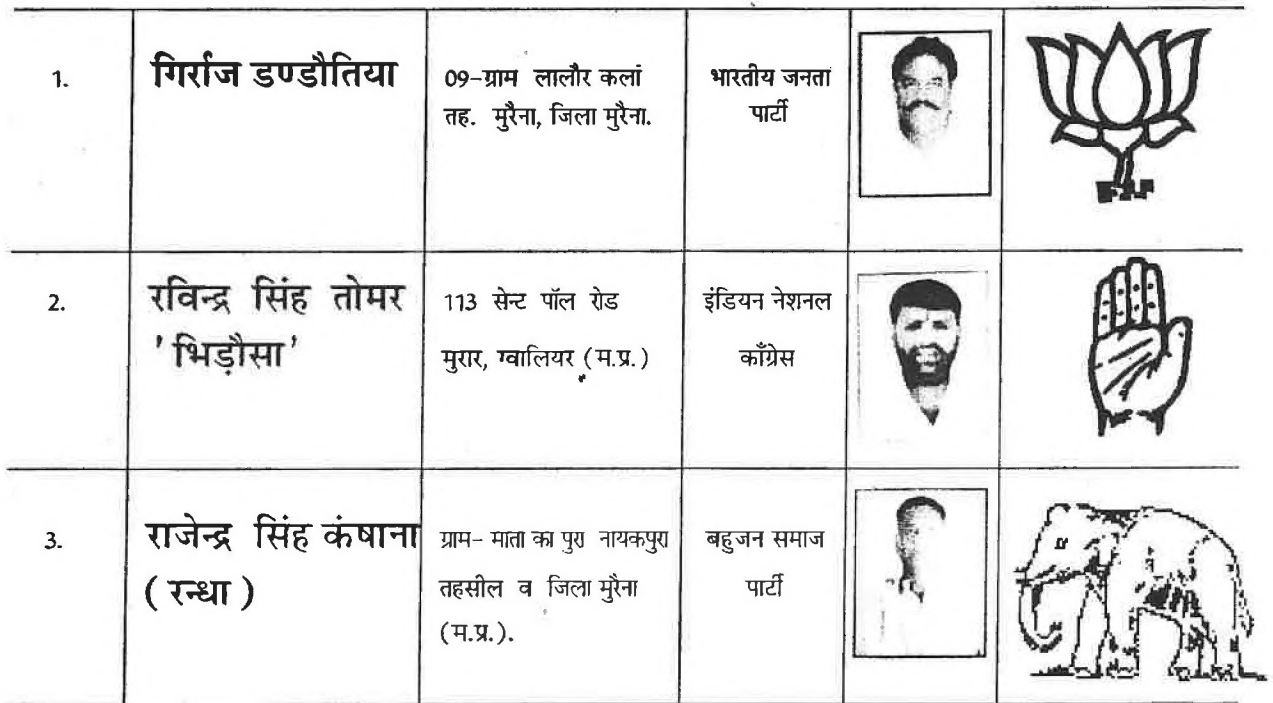 1.
गिर्राज डण्डौतिया
09-ग्राम लालौर कलां
तह. मुरैना, जिला मुरैना.
भारतीय जनता
पार्टी
2.
रविन्द्र सिंह तोमर
'भिड़ौसा'
113 सेन्ट पॉल रोड
मुरार, ग्वालियर (म.प्र.)
इंडियन नेशनल
काँग्रेस
3.
राजेन्द्र सिंह कंषाना
( रन्धा )
ग्राम- माता का पुरा नायकपुरा
तहसील व जिला मुरैना
(म.प्र.).
बहुजन समाज
पार्टी